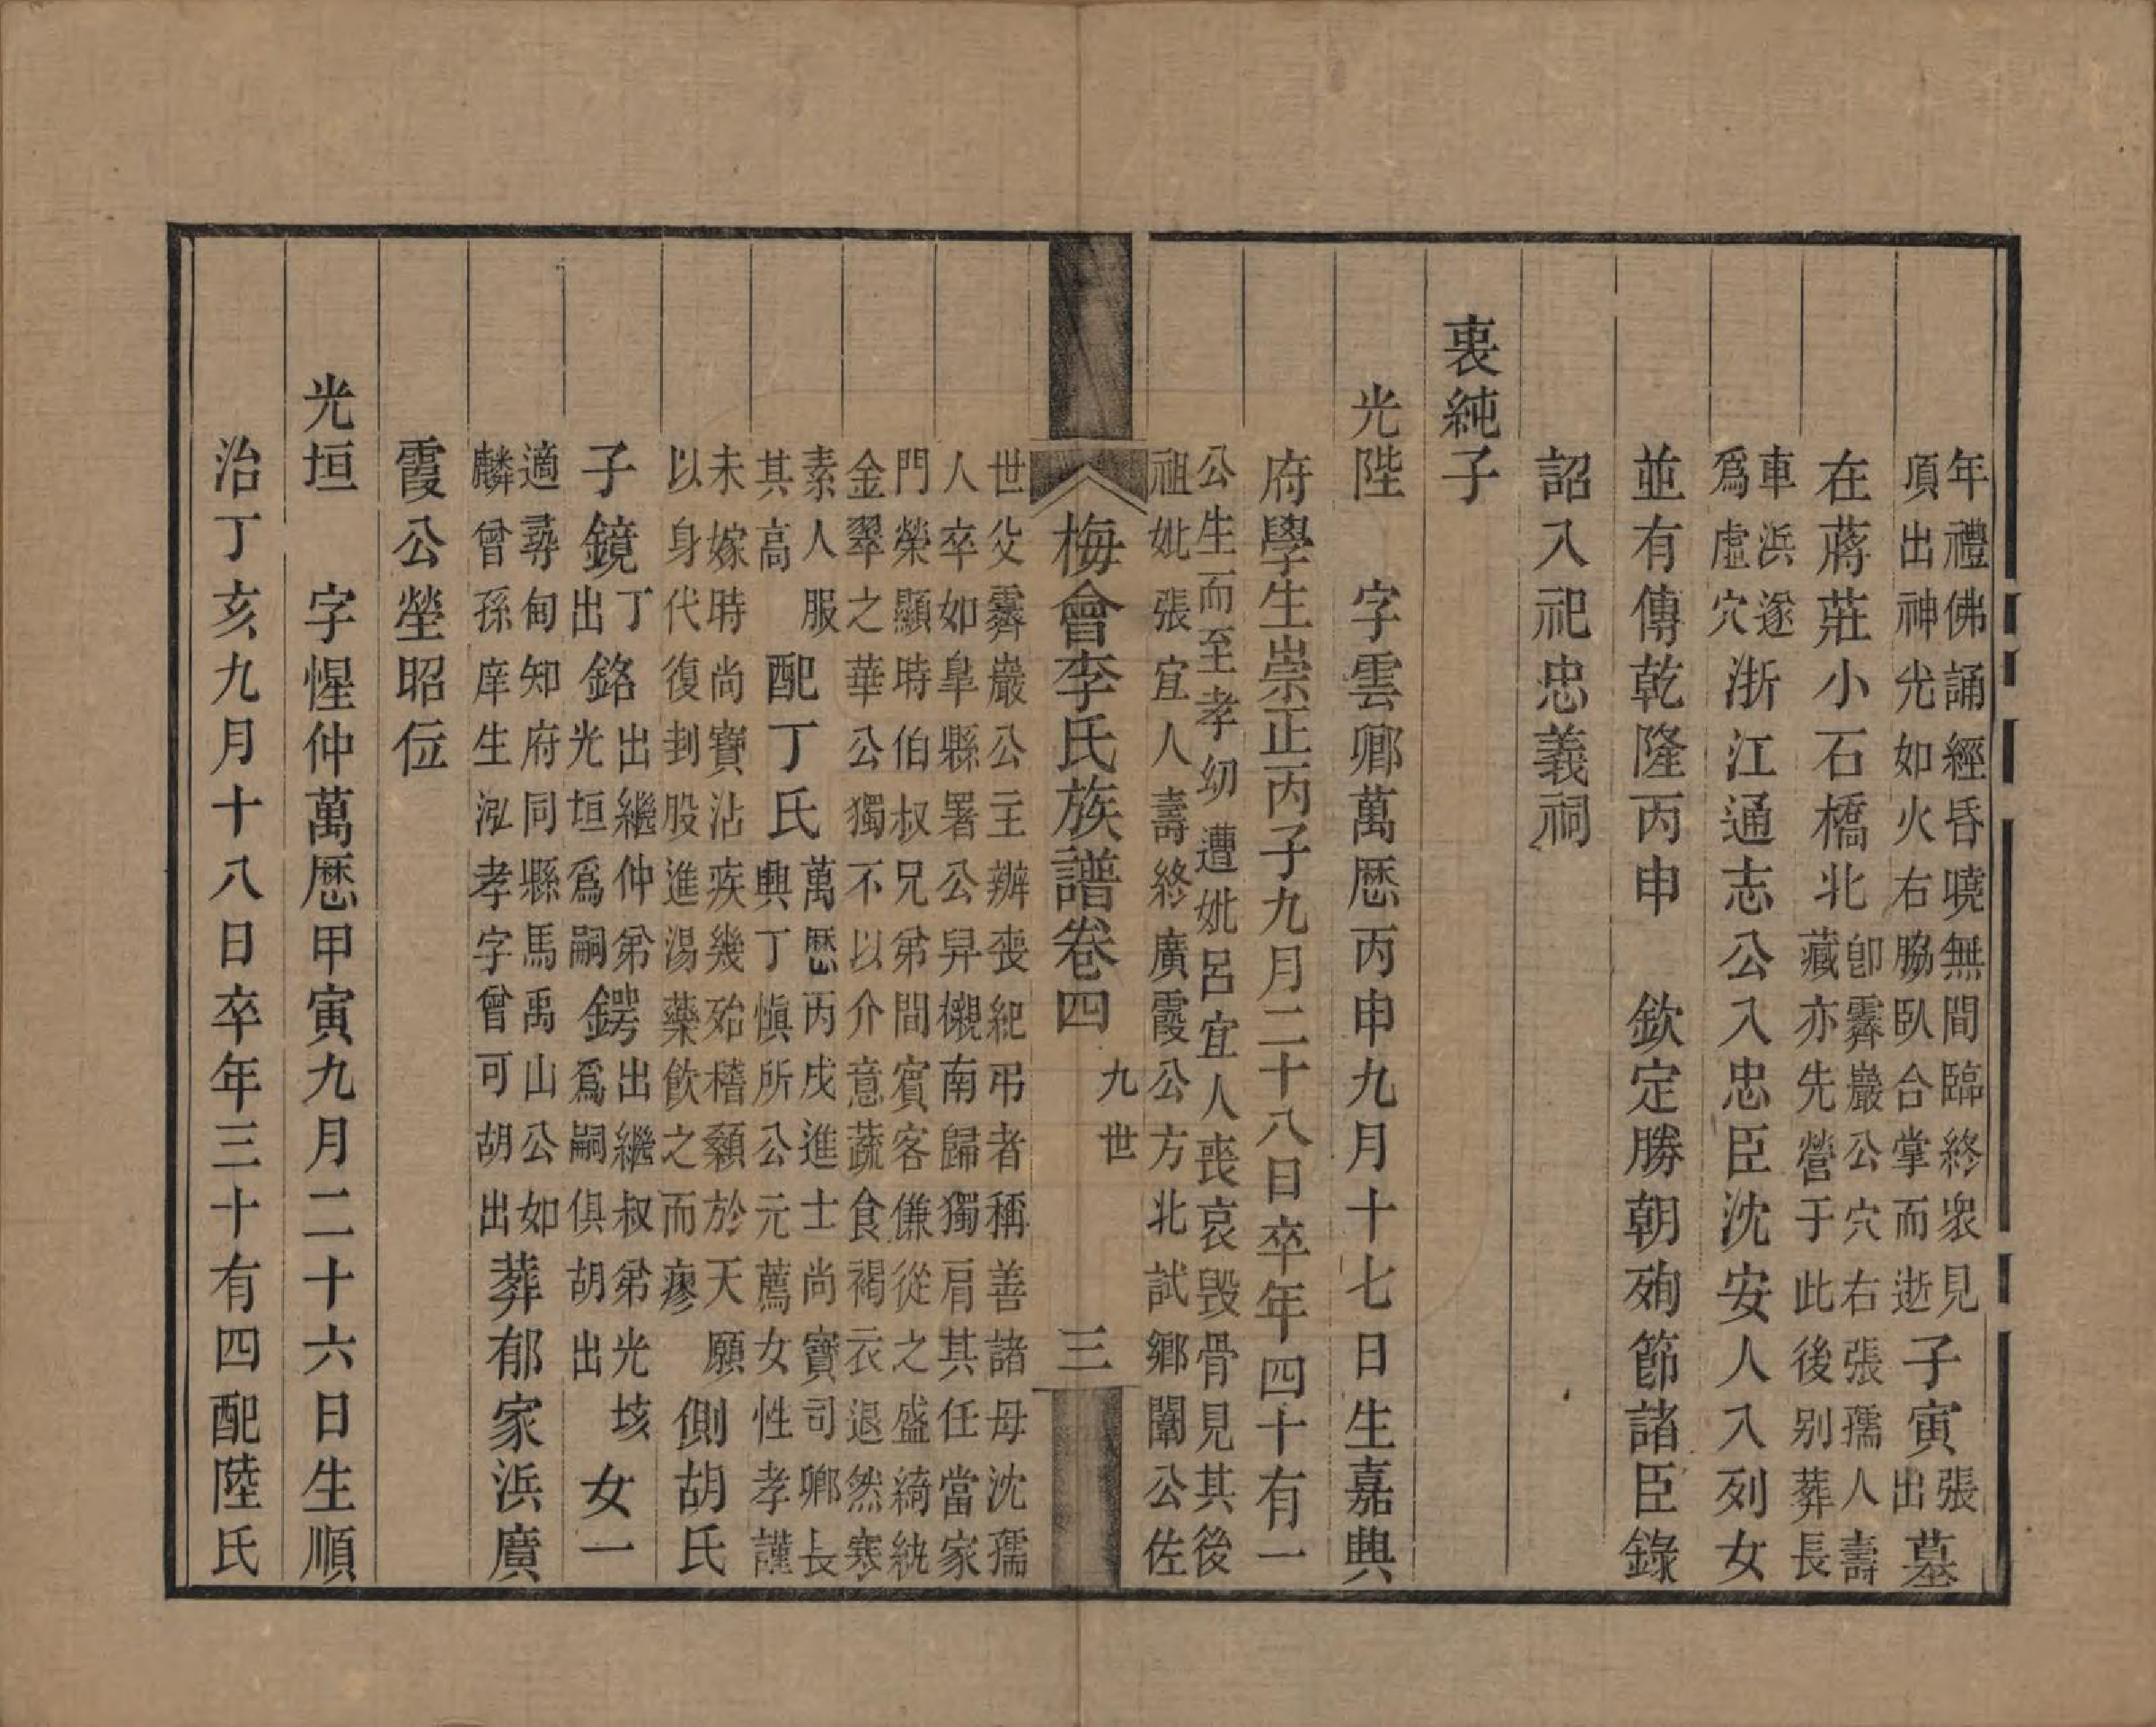 年禮佛誦經昏曉無間臨終衆見
項出神光如火右脇臥合掌而逝
子寅
張
出
墓
在蔣莊小石橋北
卽霽巖公穴右張孺人壽
藏亦先營于此後别葬長
車浜遂
爲虛穴
浙江通志公入忠臣沈安人入列女
並有傳乾隆丙申 欽定勝朝殉節諸臣錄
詔入祀忠義祠
裏純子
光陛 字雲卿萬厯丙申九月十七日生嘉興
府學生崇正丙子九月二十八日卒年四十有一
公生而至孝幼遭妣呂宜人喪哀毀骨見其後
祖妣張宜人壽終廣霞公方北試鄉闈公佐
梅會李氏族譜卷四 九世 三
世父霽巖公主辦喪紀弔者稱善諸母沈孺
人卒如臯縣署公舁櫬南歸獨肩其任當家
門榮顯時伯叔兄弟間賓客傔從之盛綺紈
金翠之華公獨不以介意蔬食褐衣退然寒
素人服
其高
配丁氏
萬厯丙戌進士尚寶司卿長
興丁愼所公元薦女性孝謹
未嫁時尚寶沾疾幾殆稽顙於天願
以身代復刲股進湯藥飲之而瘳
側胡氏
子鏡
丁
出
銘
出繼仲弟
光垣爲嗣
鍔
出繼叔弟光垓
爲嗣俱胡出
女一
適尋甸知府同縣馬禹山公如
麟曾孫庠生泓孝字曾可胡出
葬郁家浜廣
霞公塋昭位
光垣 字惺仲萬厯甲寅九月二十六日生順
治丁亥九月十八日卒年三十有四配陸氏